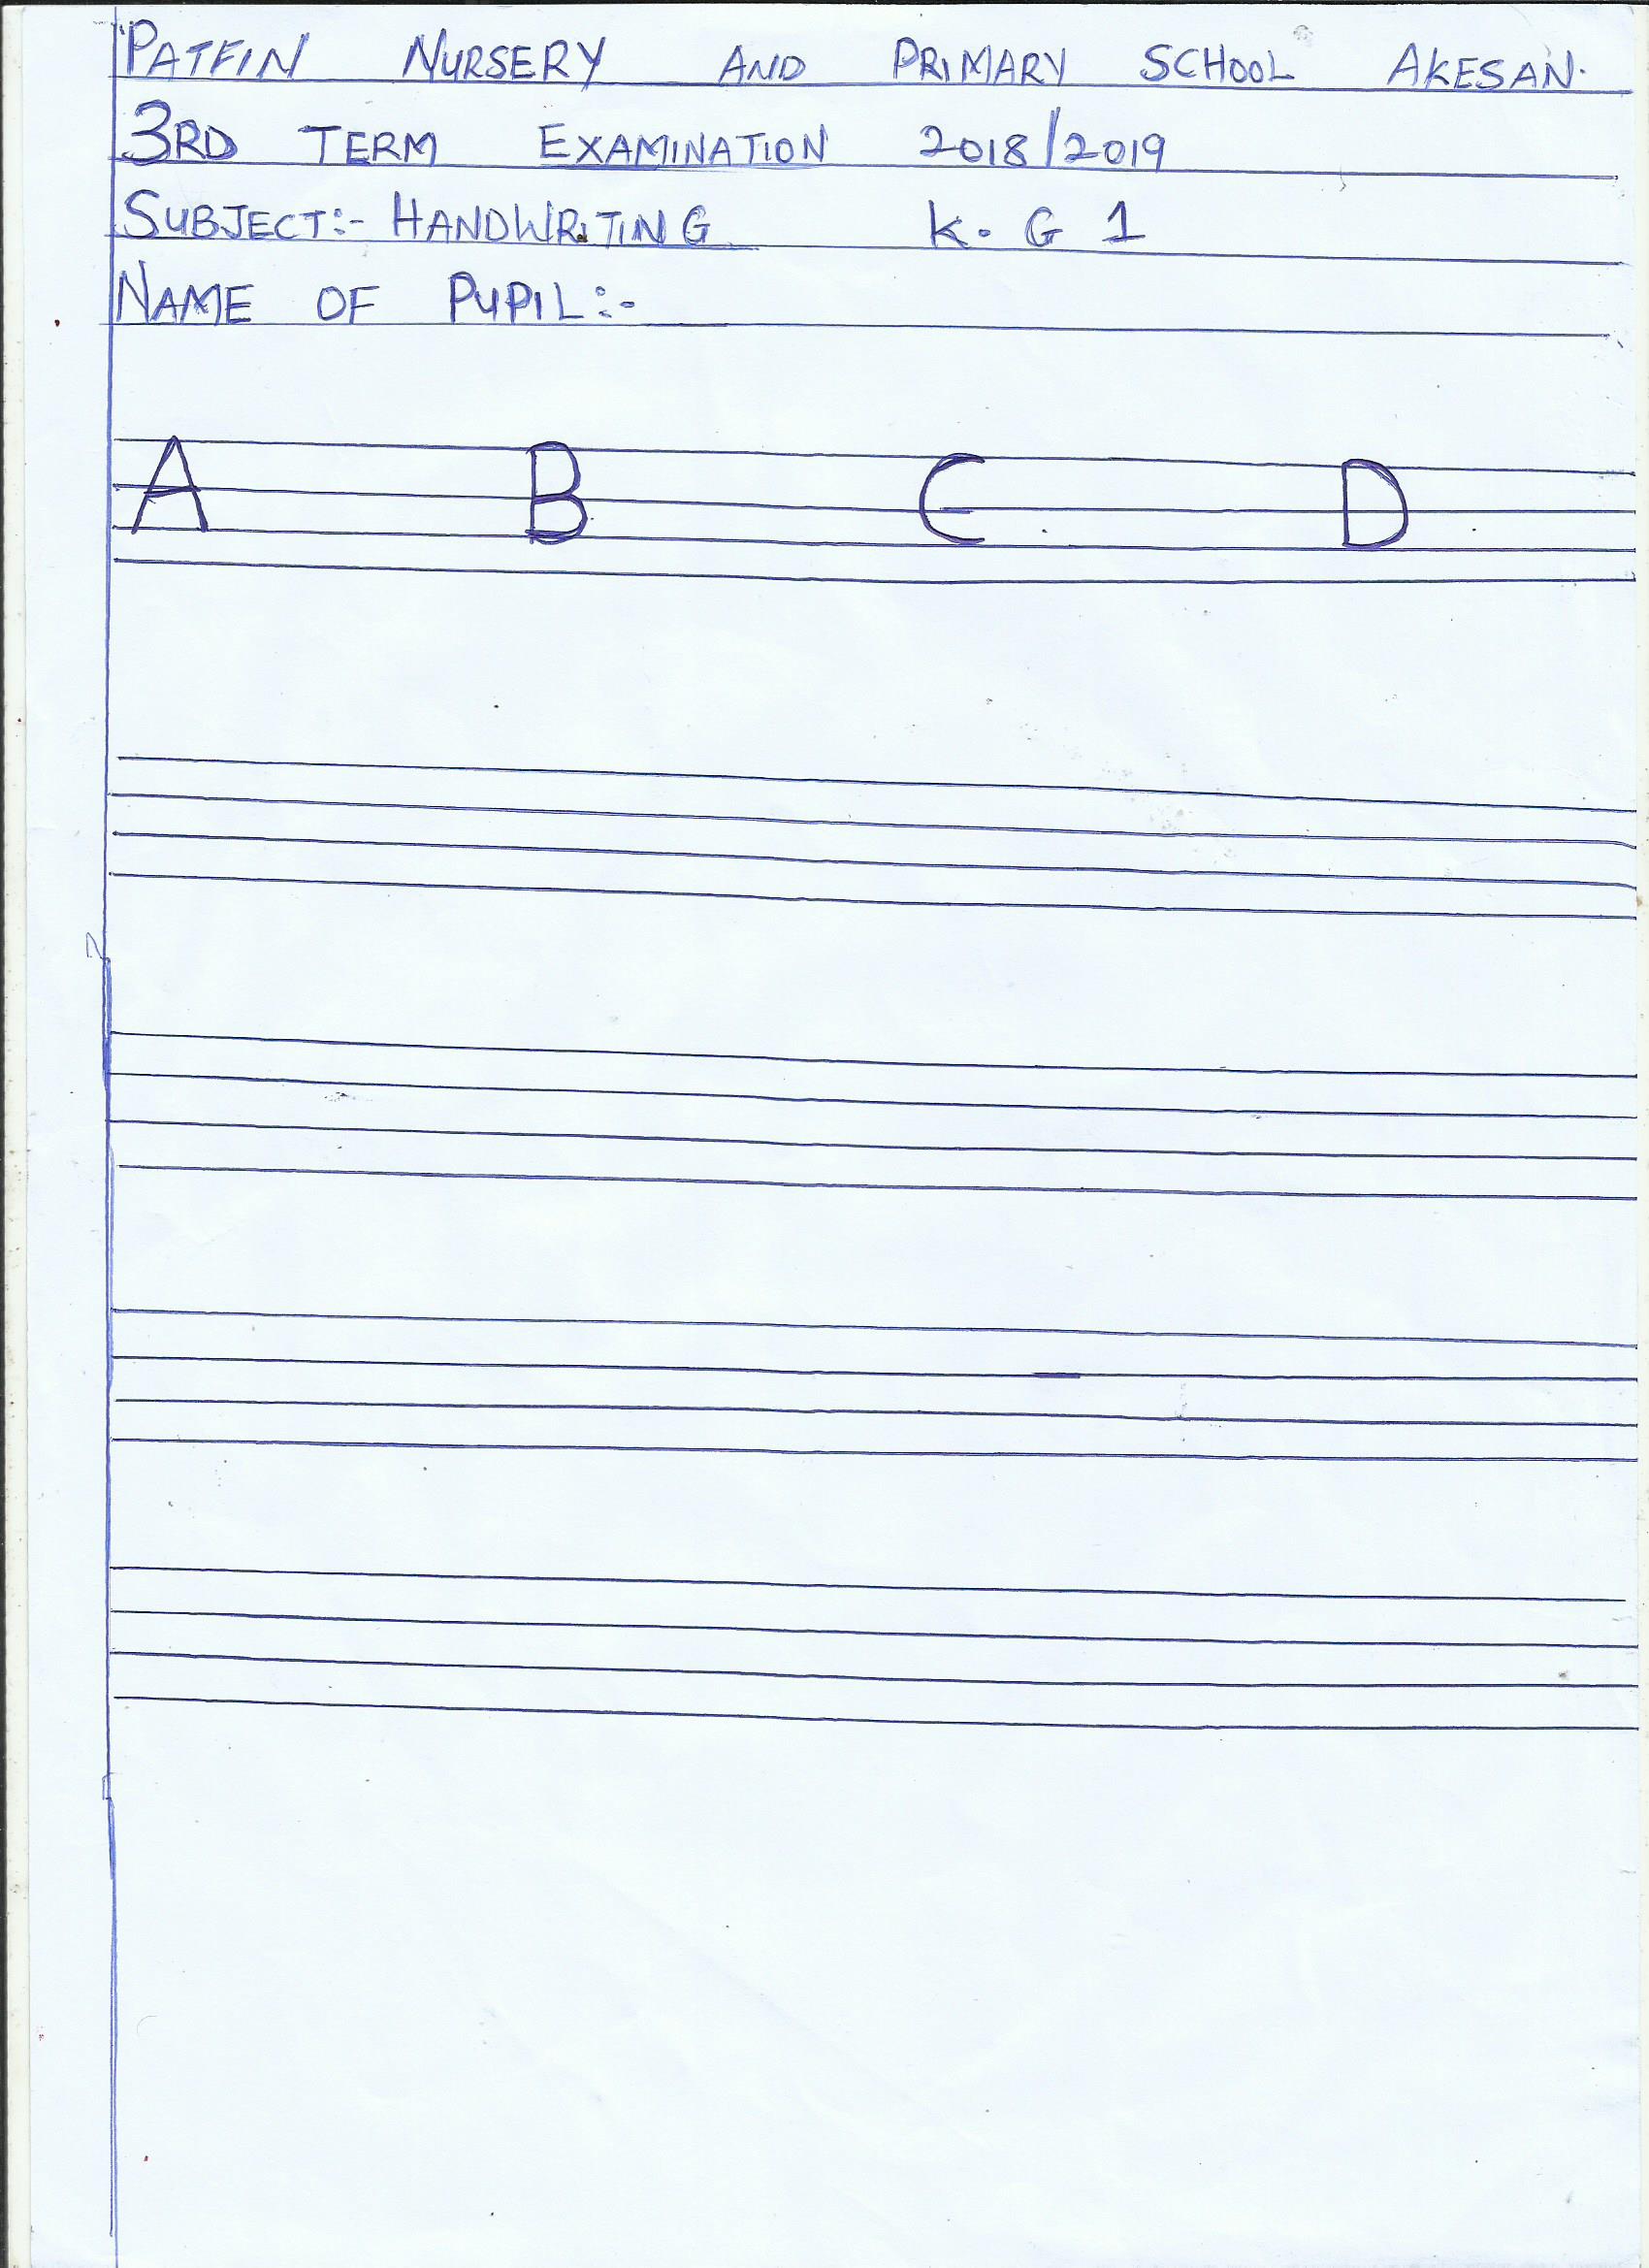 PATFIN NURSERY AND PRIMARY SCHOOL AKESAN.
3RD TERM EXAMINATION 2018/2019
SUBJECT:- HANDWRITING K. G 1
NAME OF PUPIL:-
A B C D